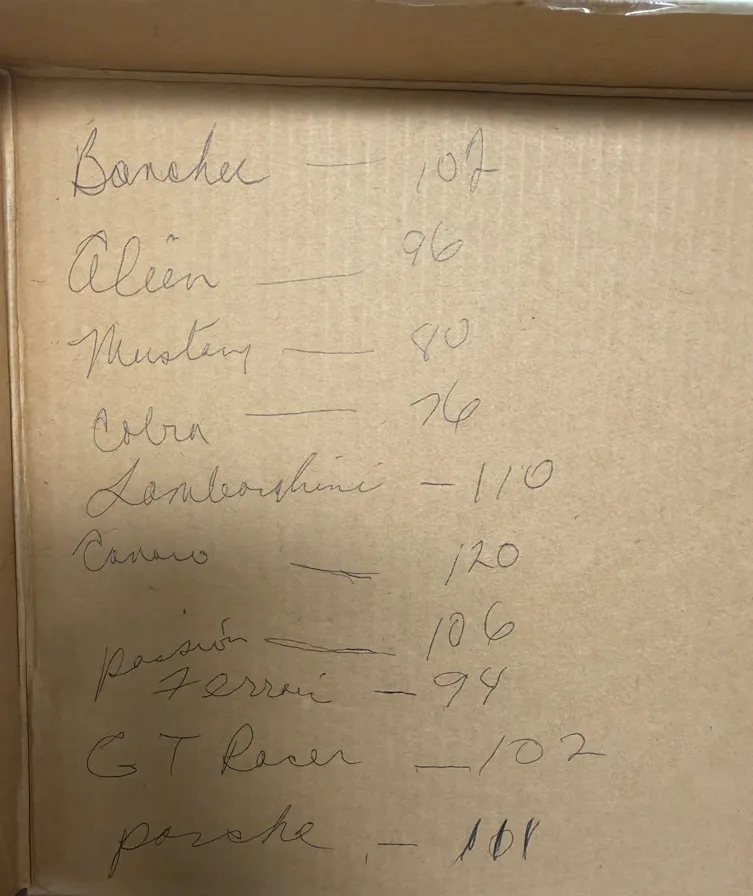 Banchee — 102
Alien — 96
Mustang — 80
Cobra — 76
Lamborghini — 110
Camaro — 120
passion — 106
Ferrari — 94
GT Racer — 102
porsche — 101